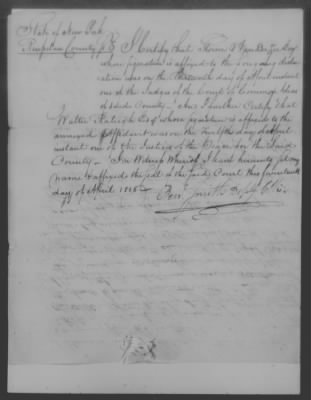 State of New York
County ss I Certify that
whose signature is affixed to the foregoing decla
ration was on the day of April instant
one of the Judges of the Court of Common Pleas
of said County – And I further Certify that
Walter Raleigh Esqr whose signature is affixed to the
annexed affidavit was on the Twelfth day of April
instant one of the Justices of the Peace for the said
County – In Witness Whereof I have hereunto set my
name & affixed the seal of the said Court this
day of April 1818
Smith